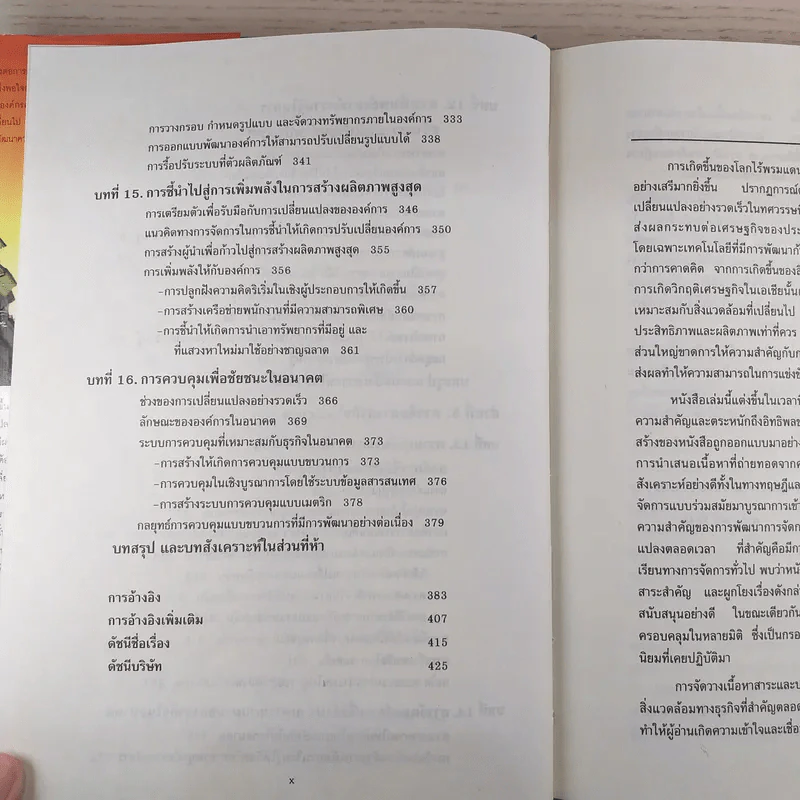 การวางกรอบ กำหนดรูปแบบ และจัดวางทรัพยากรภายในองค์การ 333
การออกแบบพัฒนาองค์การให้สามารถปรับเปลี่ยนรูปแบบได้ 338
การรื้อปรับระบบที่ตัวผลิตภัณฑ์ 341
บทที่ 15. การชี้นำไปสู่การเพิ่มพลังในการสร้างผลิตภาพสูงสุด
การเตรียมตัวเพื่อรับมือกับการเปลี่ยนแปลงขององค์การ 346
แนวคิดทางการจัดการในการชี้นำให้เกิดการปรับเปลี่ยนองค์การ 350
การสร้างผู้นำเพื่อก้าวไปสู่การสร้างผลิตภาพสูงสุด 355
การเพิ่มพลังให้กับองค์การ 356
-การปลูกฝังความคิดริเริ่มในเชิงผู้ประกอบการให้เกิดขึ้น 357
-การสร้างเครือข่ายพนักงานที่มีความสามารถพิเศษ 360
-การชี้นำให้เกิดการนำเอาทรัพยากรที่มีอยู่ และ
ที่แสวงหาใหม่มาใช้อย่างชาญฉลาด 361
บทที่ 16. การควบคุมเพื่อชัยชนะในอนาคต
ช่วงของการเปลี่ยนแปลงอย่างรวดเร็ว 366
ลักษณะขององค์การในอนาคต 369
ระบบการควบคุมที่เหมาะสมกับธุรกิจในอนาคต 373
-การสร้างให้เกิดการควบคุมแบบขบวนการ 373
-การควบคุมในเชิงบูรณาการโดยใช้ระบบข้อมูลสารสนเทศ 376
-การสร้างระบบการควบคุมแบบเมตริก 378
กลยุทธ์การควบคุมแบบขบวนการที่มีการพัฒนาอย่างต่อเนื่อง 379
บทสรุป และบทสังเคราะห์ในส่วนที่ห้า
การอ้างอิง 383
การอ้างอิงเพิ่มเติม 407
ดัชนีชื่อเรื่อง 415
ดัชนีบริษัท 425
x
การเกิดขึ้นของโลกไร้พรมแดน
อย่างเสรีมากยิ่งขึ้น ปรากฏการณ์
เปลี่ยนแปลงอย่างรวดเร็วในทศวรรษ
ส่งผลกระทบต่อเศรษฐกิจของประ
โดยเฉพาะเทคโนโลยีที่มีการพัฒนา
กว่าการคาดคิด จากการเกิดขึ้นของ
การเกิดวิกฤติเศรษฐกิจในเอเชียนั้น
เหมาะสมกับสิ่งแวดล้อมที่เปลี่ยนไป
ประสิทธิภาพและผลิตภาพเท่าที่ควร
ส่วนใหญ่ขาดการให้ความสำคัญกับ
ส่งผลทำให้ความสามารถในการแข่ง
หนังสือเล่มนี้แต่งขึ้นในเวลา
ความสำคัญและตระหนักถึงอิทธิพล
สร้างของหนังสือถูกออกแบบมาอย่าง
การนำเสนอเนื้อหาที่ถ่ายทอดจาก
สังเคราะห์อย่างดีทั้งในทางทฤษฎี
จัดการแบบร่วมสมัยมาบูรณาการเข้า
ความสำคัญของการพัฒนาการจัดก
แปลงตลอดเวลา ที่สำคัญคือมีก
เรียนทางการจัดการทั่วไป พบว่า
สาระสำคัญ และผูกโยงเรื่องดังกล่
สนับสนุนอย่างดี ในขณะเดียวกัน
ครอบคลุมในหลายมิติ ซึ่งเป็นกรอ
นิยมที่เคยปฏิบัติมา
การจัดวางเนื้อหาสาระและ
สิ่งแวดล้อมทางธุรกิจที่สำคัญตลอด
ทำให้ผู้อ่านเกิดความเข้าใจและเชื่อ